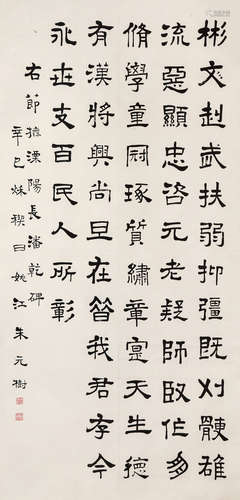 彬文赳武扶弱抑彊既刈骾雄
流惡顯忠咨元老疑師臤作多
脩學童冠琢質繡章寔天生德
有漢將興尚旦在昔我君存今
永世支百民人所彰
右節溧陽長潘乾碑
辛巳秌稧日姚江朱元樹